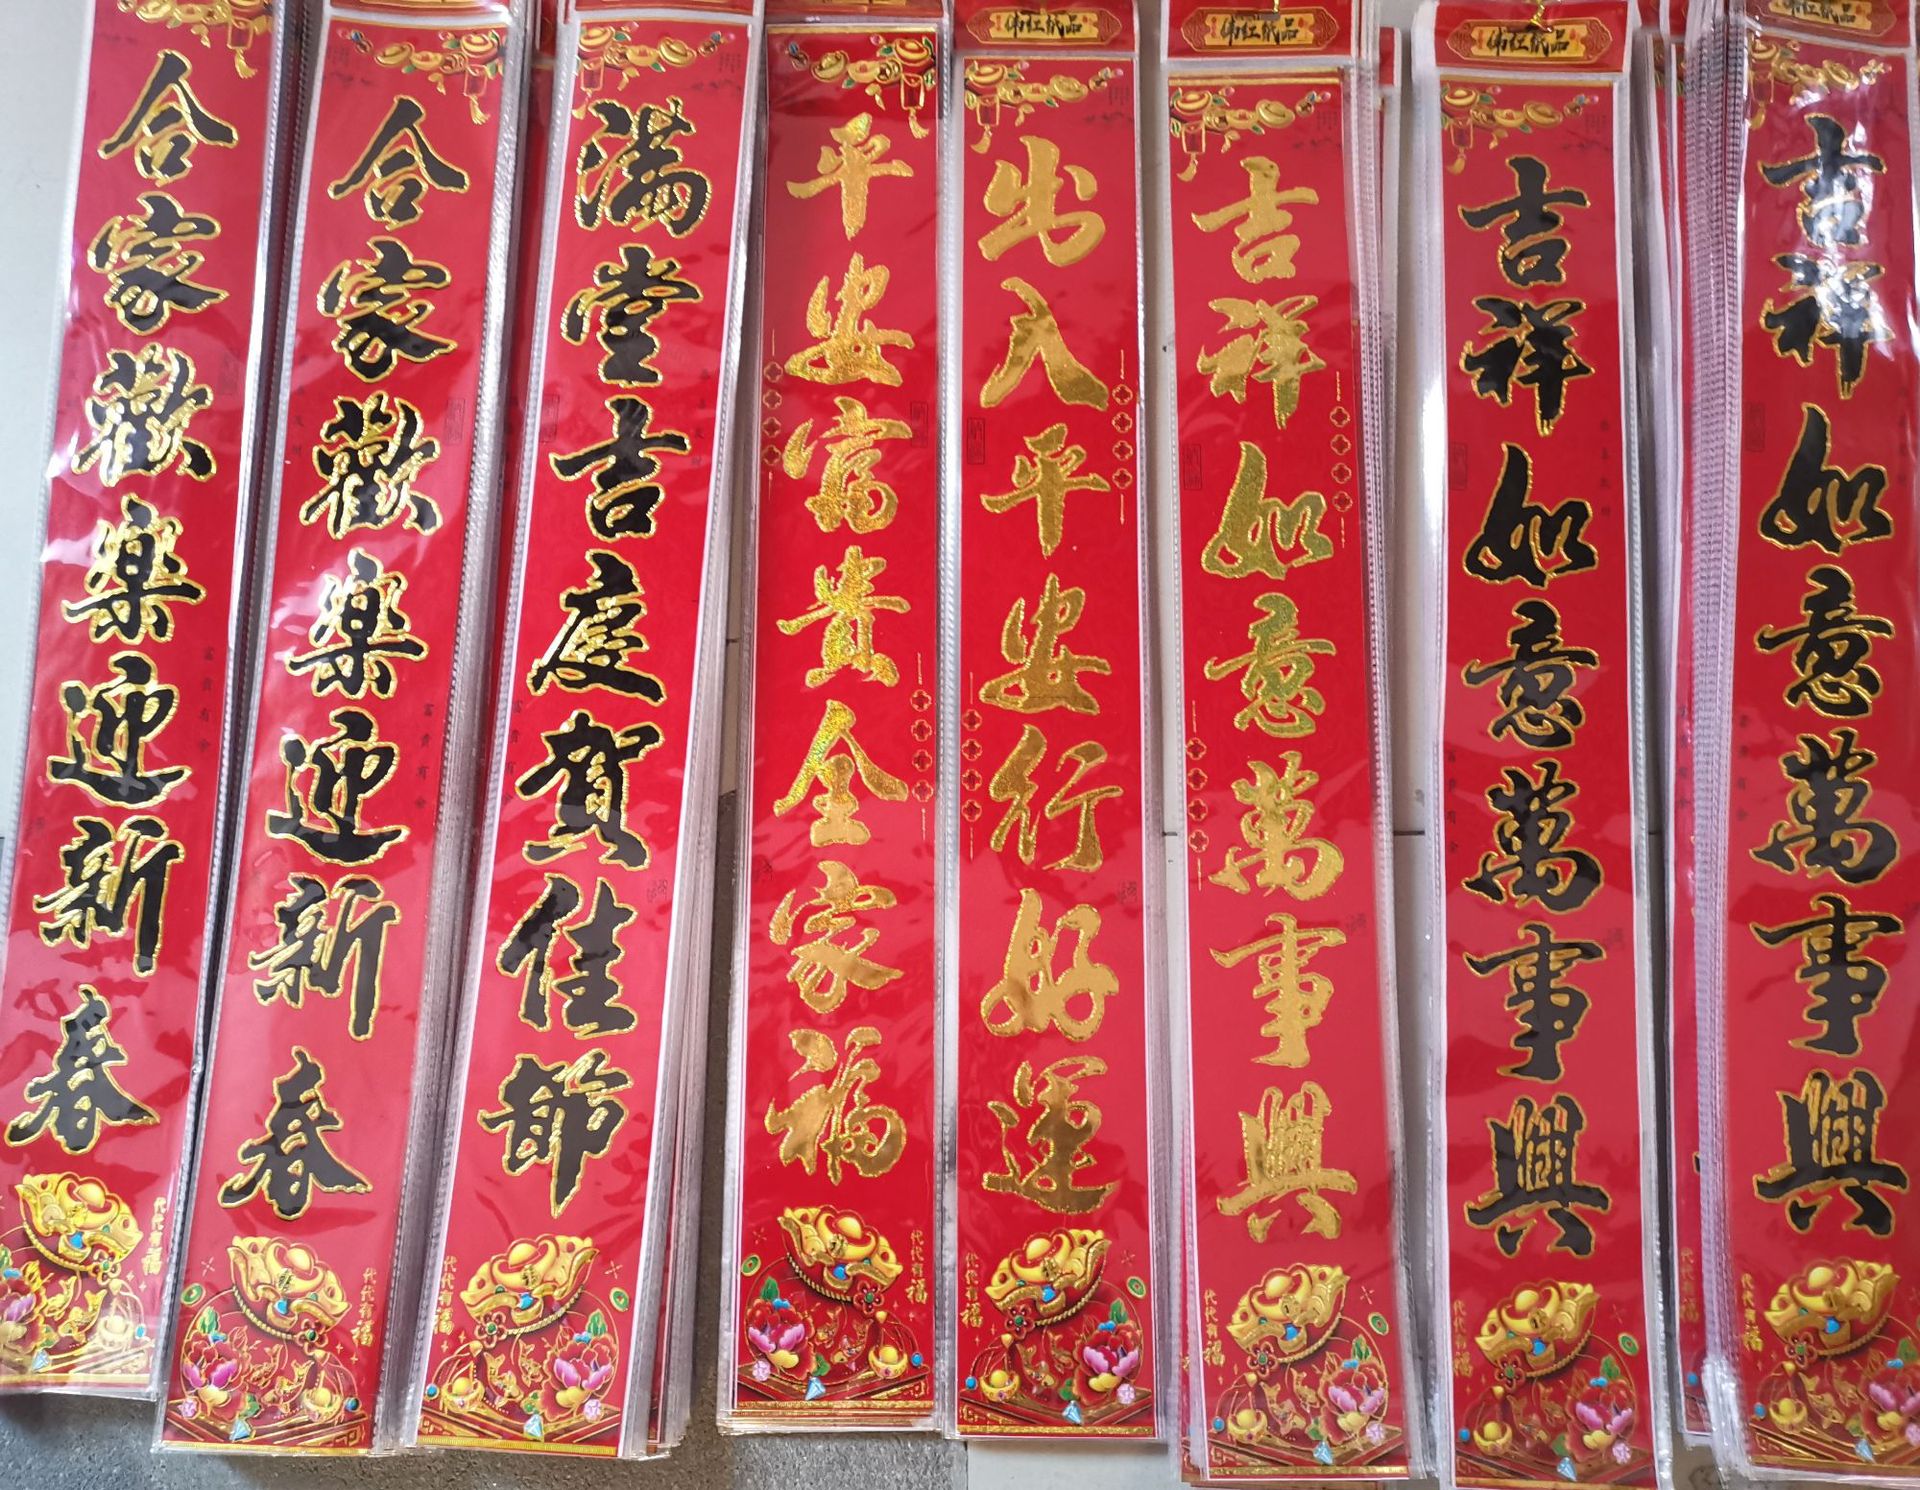 合家歡樂迎新春
合家歡樂迎新春
滿堂吉慶賀佳節
平安富貴全家福
出入平安行好運
吉祥如意萬事興
吉祥如意萬事興
吉祥如意萬事興
伟红纸品
伟红纸品
伟红纸品
伟红纸品
富貴有余
富貴有余
代代有福
代代有福
代代有福
代代有福
代代有福
代代有福
代代有福
代代有福